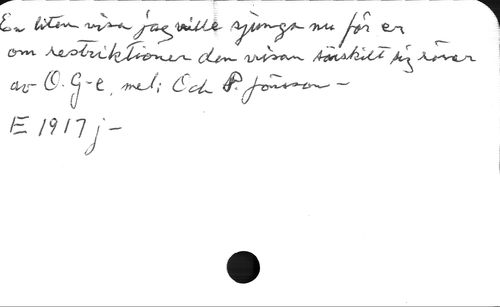 En liten visa jag ville sjunga nu för er
om restriktioner den visan särskilt sig rörer
av O. G-e, mel: Och P. Jönsson -
E 1917 j -